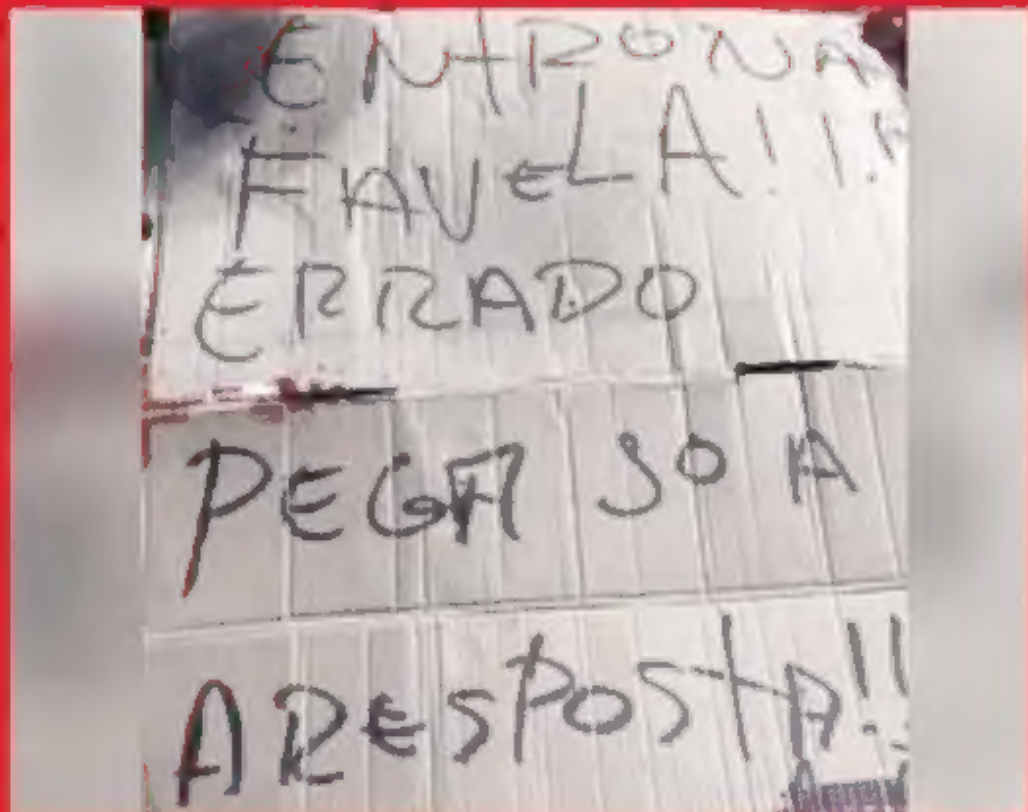 ENTRO NA
FAVELA!!!
ERRADO
PEGA SO A
A RESPOSTA!!